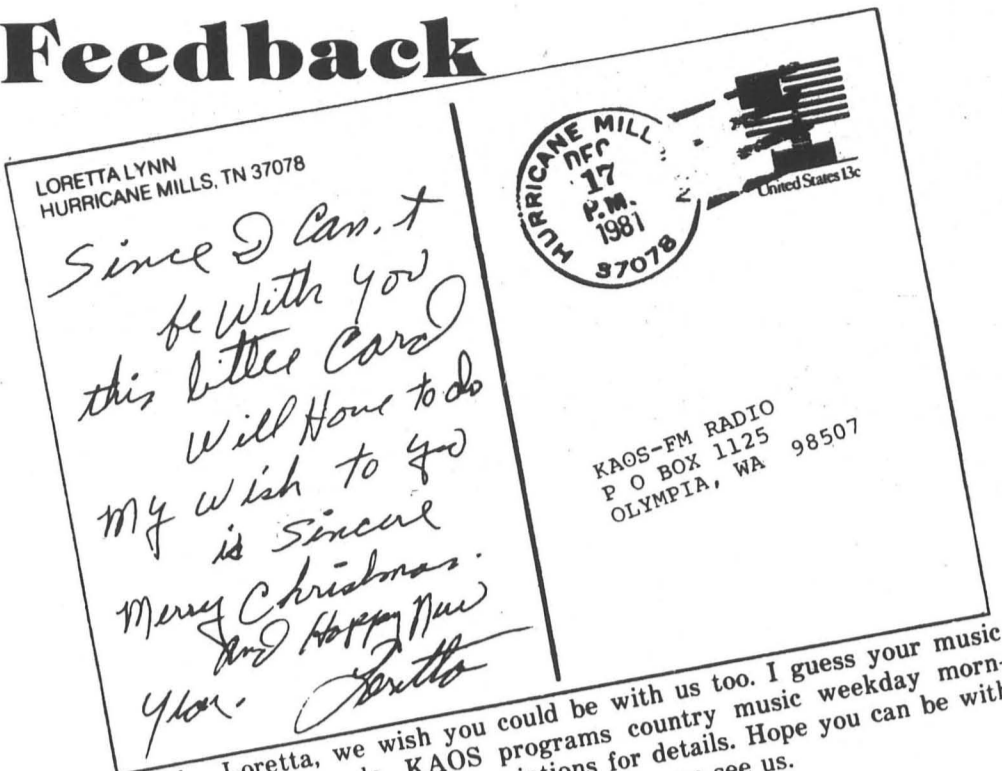 Feedback
LORETTA LYNN
HURRICANE MILLS, TN 37078
Since I Can,t
be With you
this little Card
Will Have to do
My wish to you
is Sincere
Merry Christmas.
And Happy New
Year. Loretta
HURRICANE MILL
DEC
17
P.M.
1981
37078
United States 13c
KAOS-FM RADIO
P O BOX 1125
OLYMPIA, WA 98507
Loretta, we wish you could be with us too. I guess your music
KAOS programs country music weekday morn-
for details. Hope you can be with
see us.